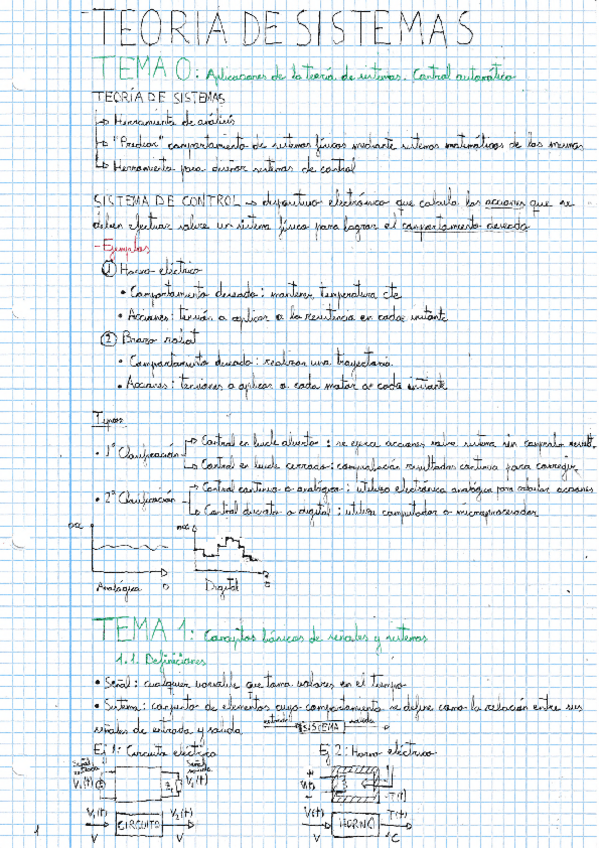 TEORÍA DE SISTEMAS
TEMA 0: Aplicaciones de la teoría de sistemas. Control automático
TEORÍA DE SISTEMAS
↳ Herramienta de análisis
↳ "Predecir" comportamiento de sistemas físicos mediante sistemas matemáticos de los mismos
↳ Herramienta para diseñar sistemas de control
SISTEMA DE CONTROL → dispositivo electrónico que calcula las acciones que se
deben efectuar sobre un sistema físico para lograr el comportamiento deseado
- Ejemplos
① Horno eléctrico
• Comportamiento deseado: mantener temperatura cte
• Acciones: tensión a aplicar a la resistencia en cada instante
② Brazo robot
• Comportamiento deseado: realizar una trayectoria
• Acciones: tensiones a aplicar a cada motor en cada instante
Tipos
• 1ª Clasificación
→ Control en bucle abierto: se ejerce acciones sobre sistema sin
→ Control en bucle cerrado: comprobación resultados continua para corregir
• 2ª Clasificación
→ Control continuo o analógico: utiliza electrónica analógica para calcular acciones
→ Control discreto o digital: utiliza computador o microprocesador
Analógica
Digital
TEMA 1: Conceptos básicos de señales y sistemas
1.1. Definiciones
• Señal: cualquier variable que toma valores en el tiempo
• Sistema: conjunto de elementos cuyo comportamiento se define como la relación entre sus
señales de entrada y salida
entrada SISTEMA salida
Ej 1: Circuito eléctrico
Ej 2: Horno eléctrico
Señal entrada
Señal salida
V₁(t)
V₂(t)
V(t)
T(t)
V₁(t) CIRCUITO V₂(t)
V V
V(t) HORNO T(t)
V ºC
1